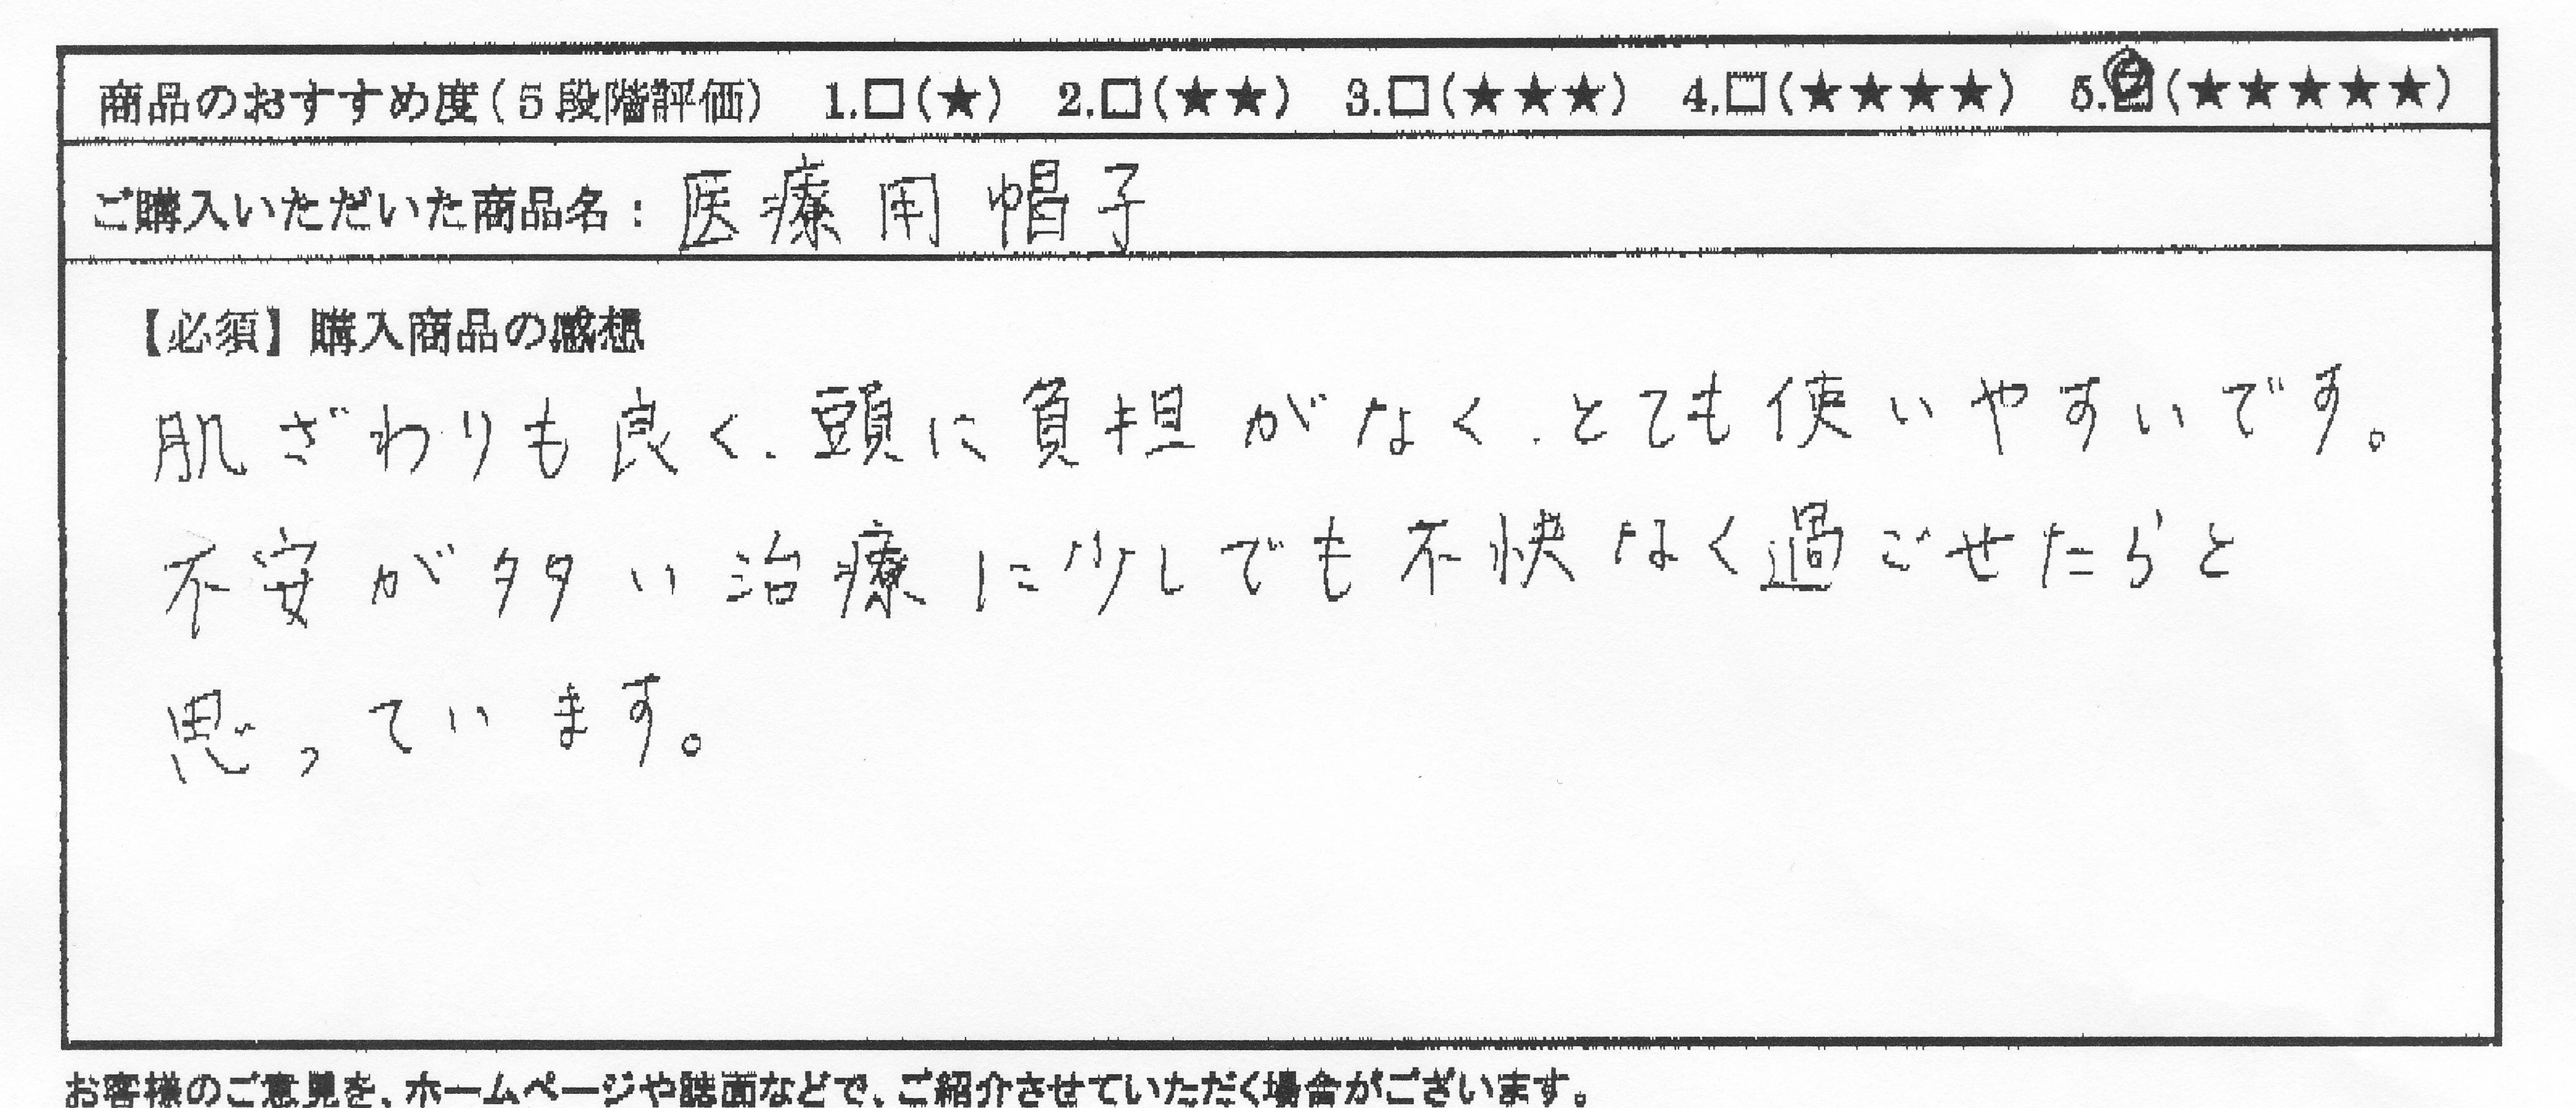 商品のおすすめ度(5段階評価) 1.□(★) 2.□(★★) 3.□(★★★) 4.□(★★★★) 5.□(★★★★★)
ご購入いただいた商品名: 医療用帽子
【必須】購入商品の感想
肌ざわりも良く、頭に負担がなく、とても使いやすいです。
不安が多い治療に少しでも不快なく過ごせたらと
思っています。
お客様のご意見を、ホームページや誌面などで、ご紹介させていただく場合がございます。